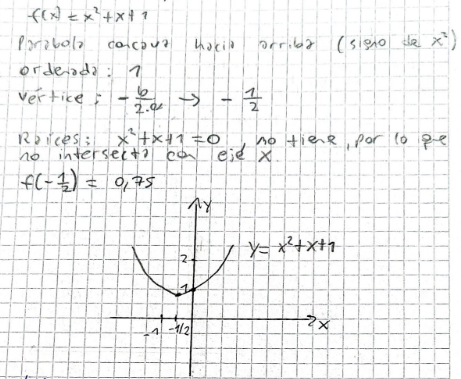 f(x) = x²+x+1
Parábola concava hacia arriba (signo de x²)
ordenada: 1
vértice: -b/2.a → -1/2
Raíces: x²+x+1=0, no tiene, por lo que
no intersecta con eje x.
f(-1/2) = 0,75
y
y = x²+x+1
2
1
-1 -1/2
x